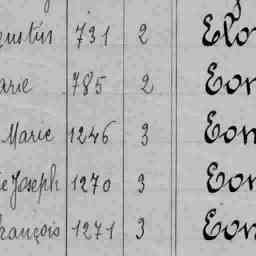 gustin 731 2 Elo
arie 785 2 Eon
Marie 1246 3 Eon
ie Joseph 1270 3 Eon
rançois 1271 3 Eon